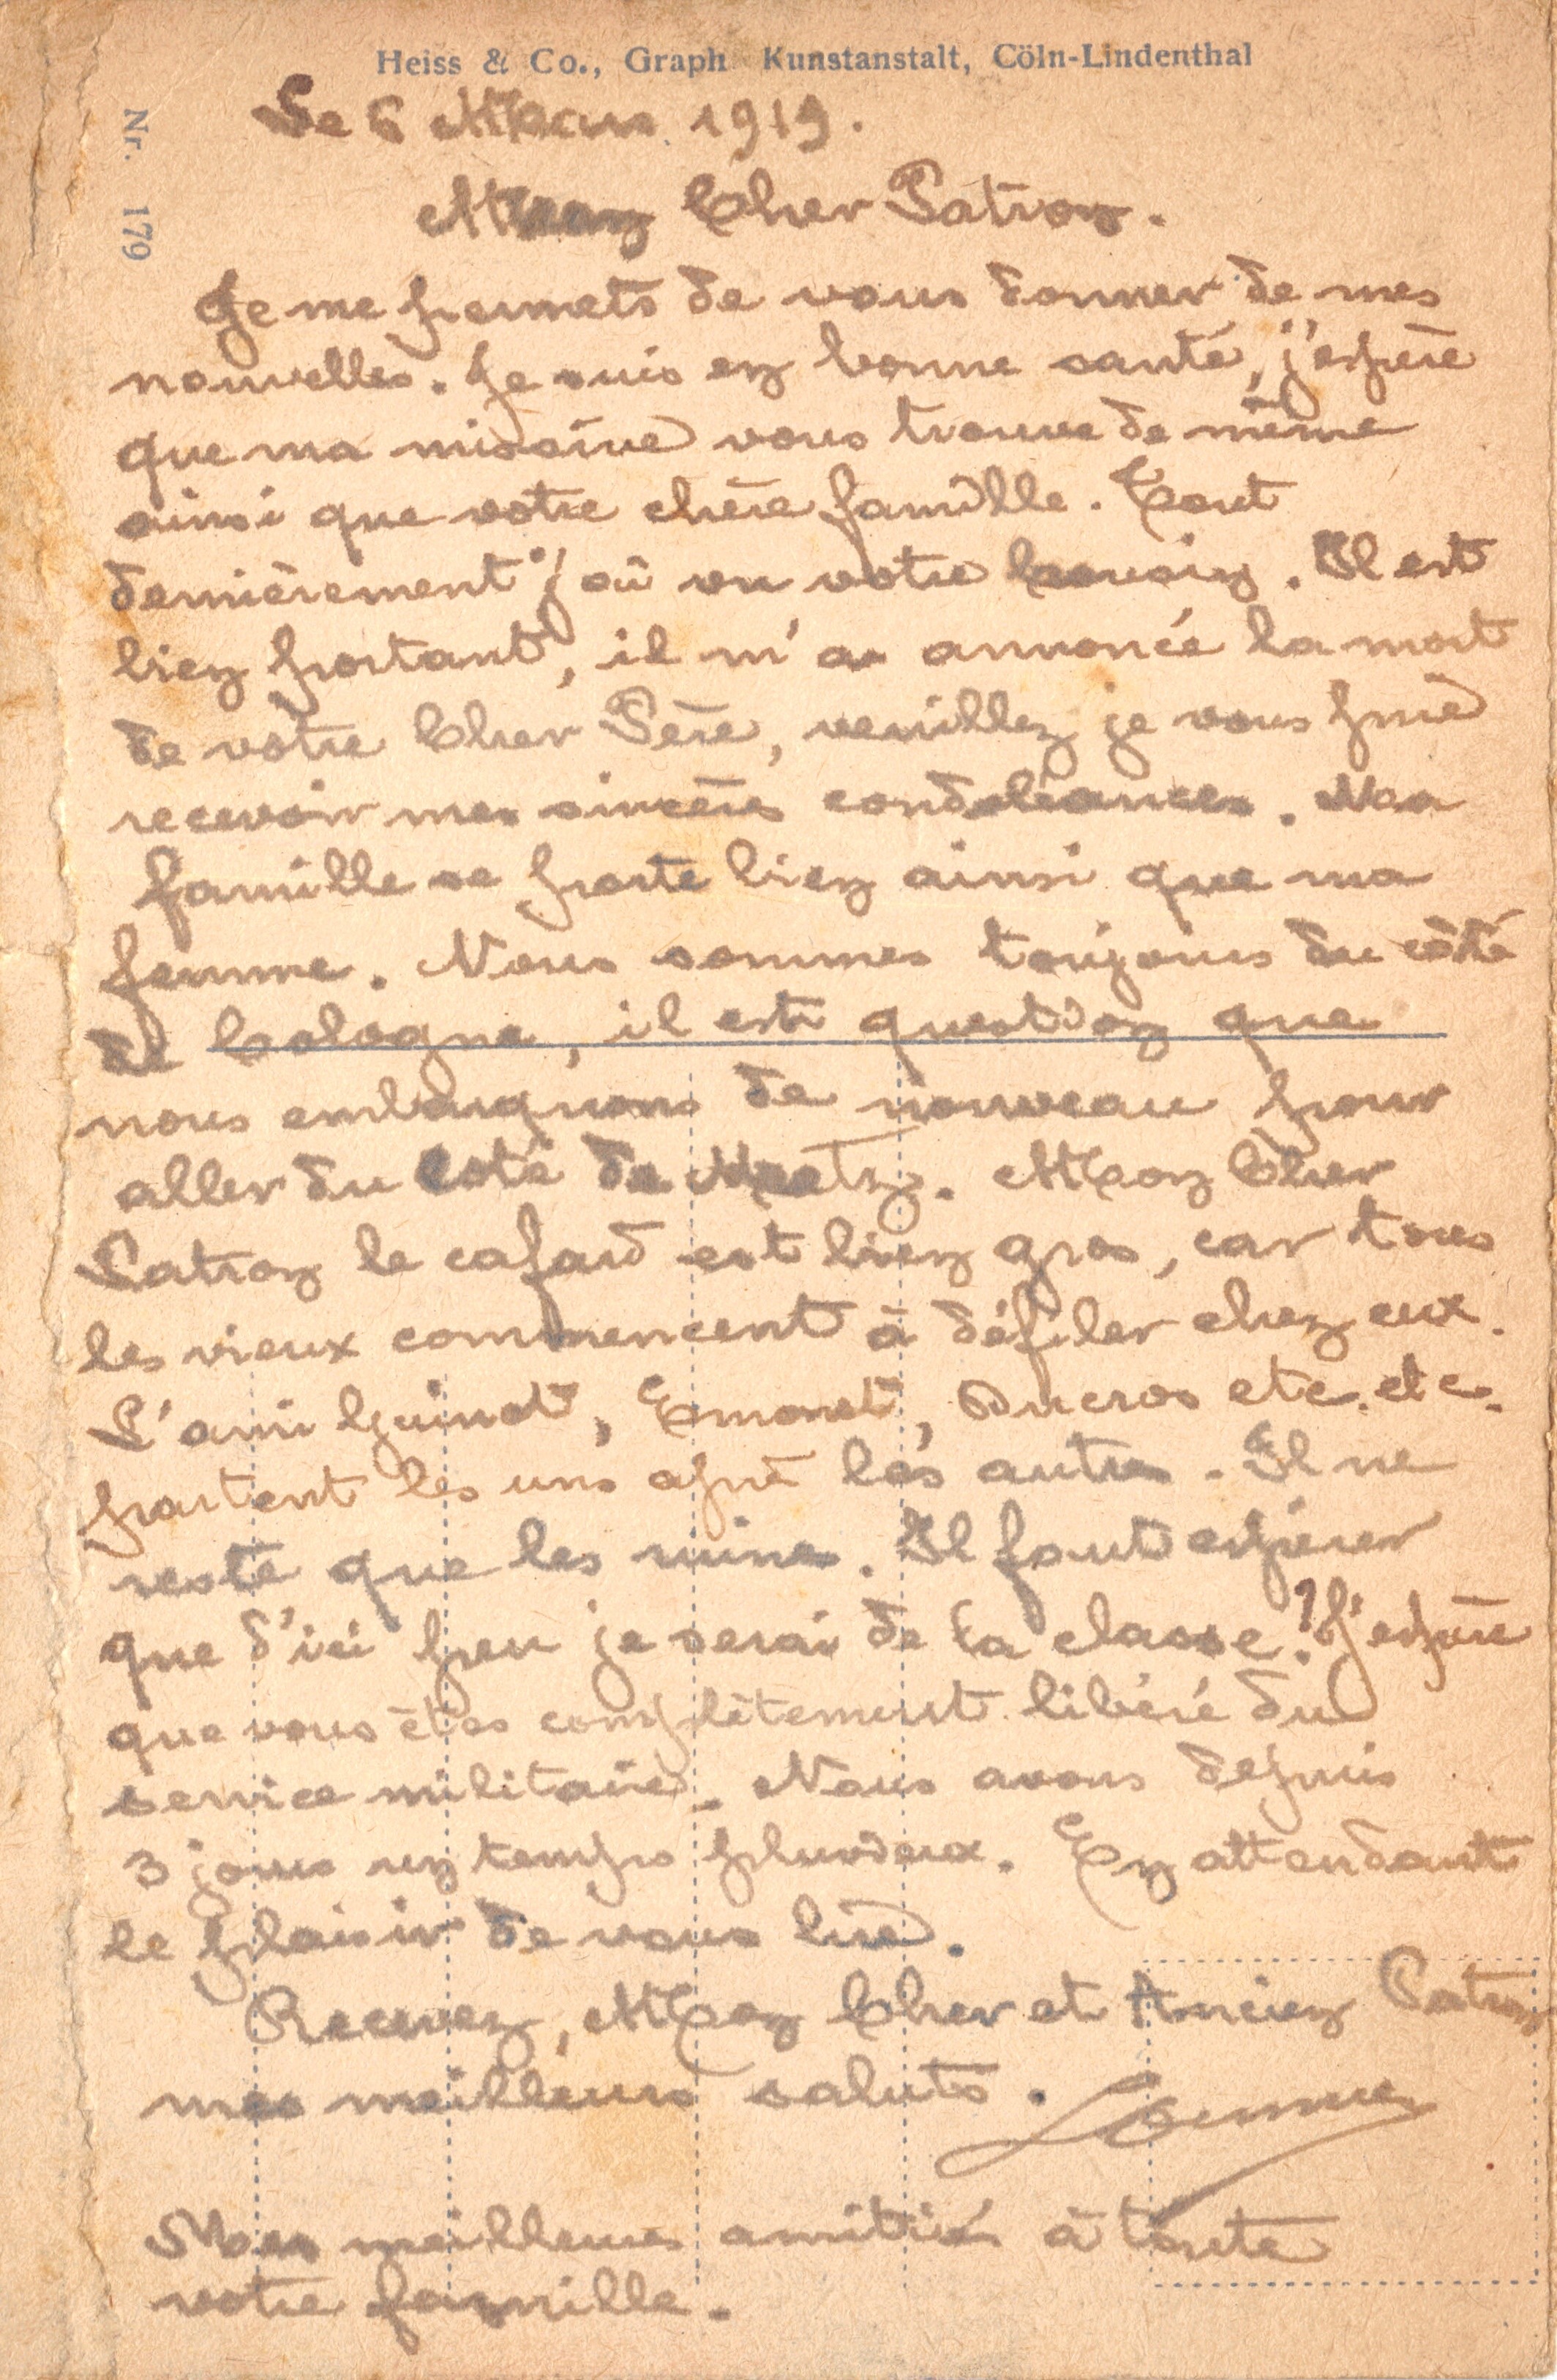 Heiss & Co., Graph Kunstanstalt, Cöln-Lindenthal
Nr. 179
Le 6 Mars 1919.
Mon Cher Patron.
Je me permets de vous donner de mes
nouvelles. Je suis en bonne santé, j'espère
que ma missive vous trouve de même
ainsi que votre chère famille. Tout
dernièrement j'ai vu votre cousin. Il est
bien portant, il m'a annoncé la mort
de votre Cher Père, veuillez je vous prie
recevoir mes sincères condoléances. Ma
famille se porte bien ainsi que ma
femme. Nous sommes toujours du côté
de Cologne, il est question que
nous embarquons de nouveau pour
aller du coté de Metz. Mon Cher
Patron le cafard est bien gros, car tous
les vieux commencent à défiler chez eux.
L'ami Guinot, Emonet, Ducros etc. etc.
partent les uns après les autres. Il ne
reste que les ruines. Il faut espérer
que d'ici peu je serai de la classe? J'espère
que vous êtes complètement libéré du
service militaire. Nous avons depuis
3 jours un temps pluvieux. En attendant
le plaisir de vous lire.
Recevez, Mon Cher et Ancien Patron
mes meilleurs saluts.
Mes meilleures amitiés à toute
votre famille.